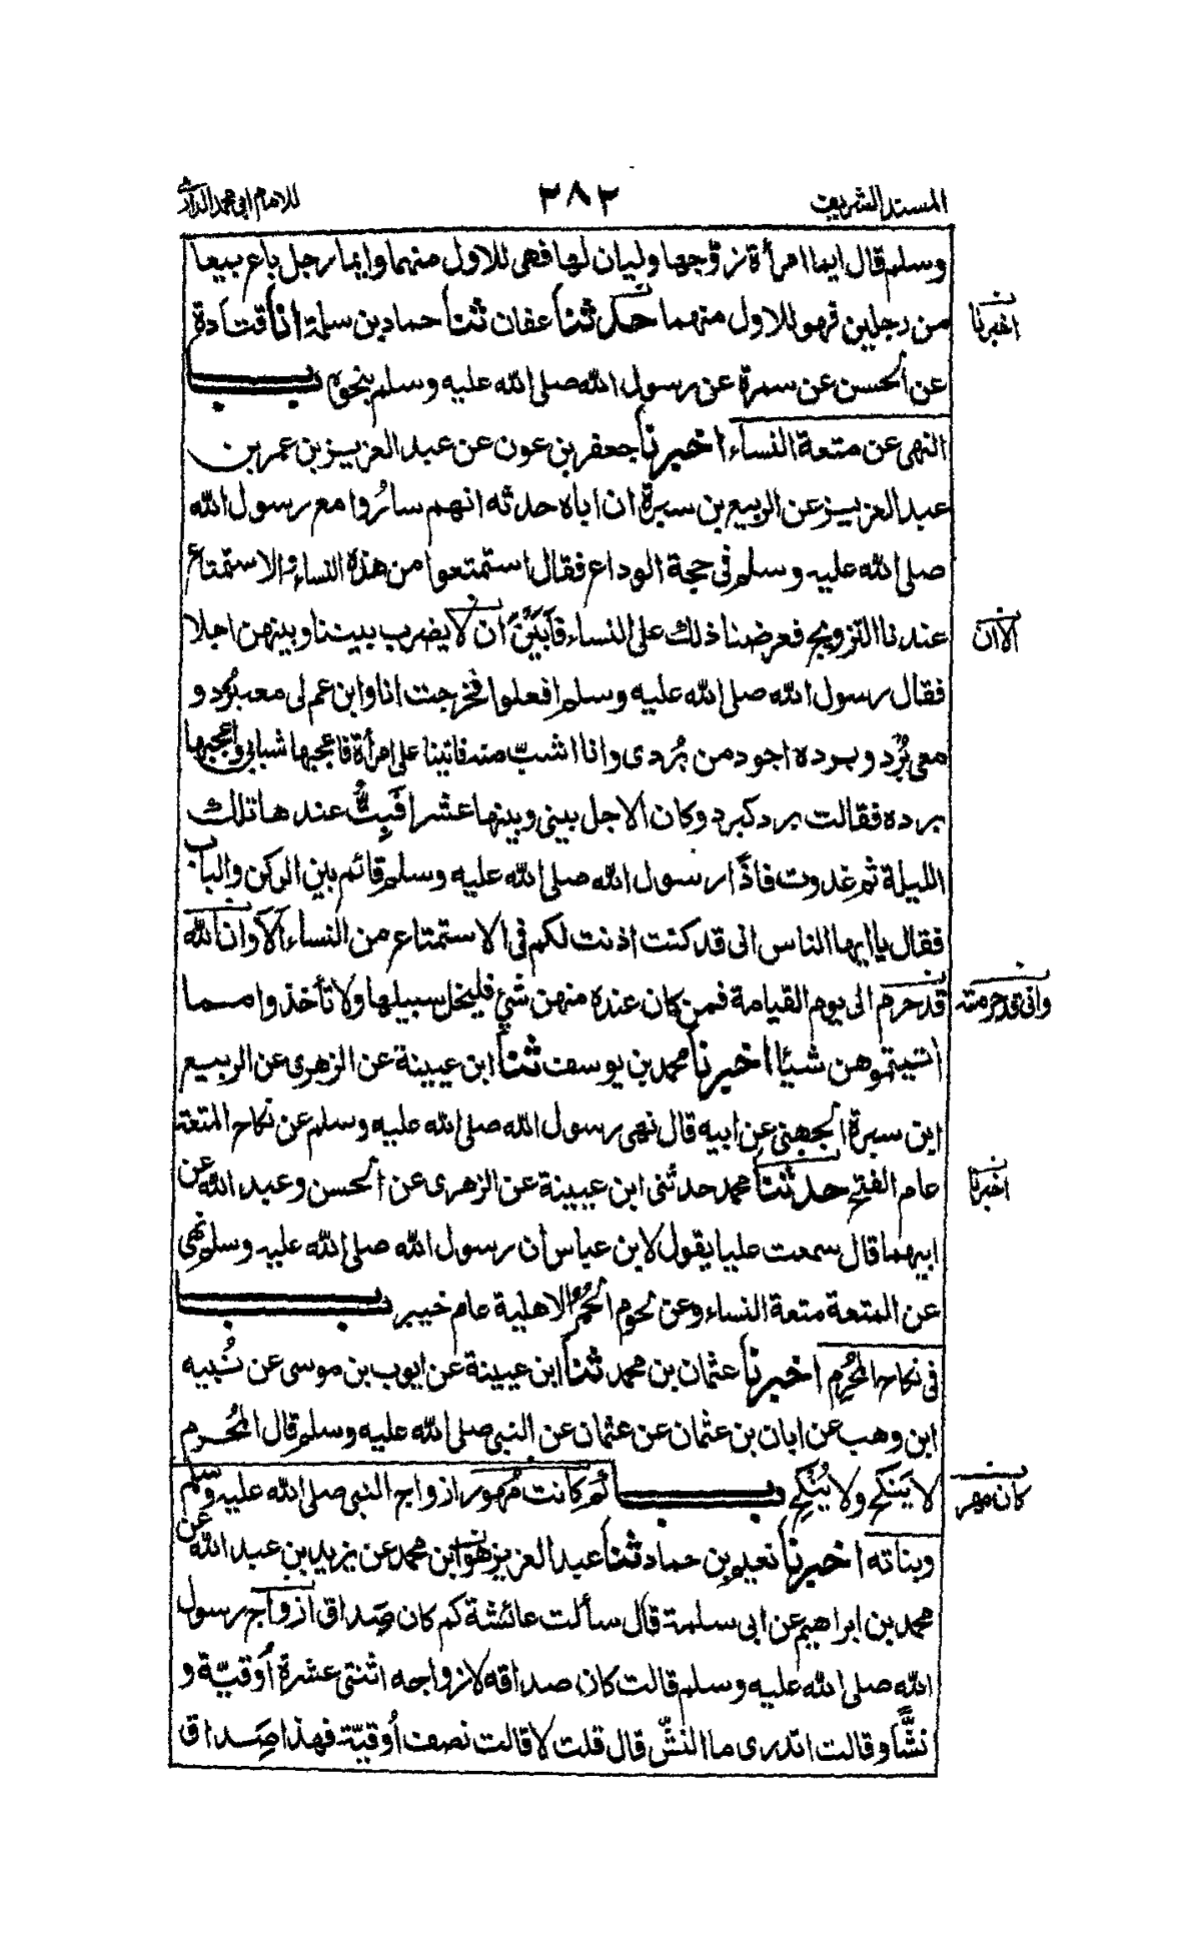 المسند الشريف ٢٨٢ للامام ابي محمد الدارمي
وسلم قال ايما امرأة زوّجها وليان لها فهي للاول منهما وايما رجل باع بيعا
من رجلين فهو للاول منهما حدثنا عفان ثنا حماد بن سلمة انا قتادة
اخبرنا
عن الحسن عن سمرة عن رسول الله صلى الله عليه وسلم بنحوه باب
النهي عن متعة النساء اخبرنا جعفر بن عون عن عبد العزيز بن عمر بن
عبد العزيز عن الربيع بن سبرة ان اباه حدثه انهم ساروا مع رسول الله
صلى الله عليه وسلم في حجة الوداع فقال استمتعوا من هذه النساء والاستمتاع
عندنا التزويج فعرضنا ذلك على النساء فأبين ان لا يضرب بيننا وبينهن اجلا
الا ان
فقال رسول الله صلى الله عليه وسلم افعلوا فخرجت انا وابن عم لي معه بُرد و
معي بُرد وبرده اجود من بُردي وانا اشبّ منه فاتينا على امرأة فاعجبها شبابي واعجبها
برده فقالت برد كبرد وكان الاجل بيني وبينها عشرا فَبِتُّ عندها تلك
الليلة ثم غدوت فاذا رسول الله صلى الله عليه وسلم قائم بين الركن والباب
فقال يا ايها الناس اني قد كنت اذنت لكم في الاستمتاع من النساء ألا وان الله
قد حرم الى يوم القيامة فمن كان عنده منهن شئ فليخل سبيلها ولا تأخذوا مما
واني قد حرمته
آتيتموهن شيئا اخبرنا محمد بن يوسف ثنا ابن عيينة عن الزهري عن الربيع
ابن سبرة الجهني عن ابيه قال نهى رسول الله صلى الله عليه وسلم عن نكاح المتعة
عام الفتح حدثنا محمد حدثني ابن عيينة عن الزهري عن الحسن وعبد الله عن
اخبرنا
ابيهما قال سمعت عليا يقول لابن عباس ان رسول الله صلى الله عليه وسلم نهى
عن المتعة متعة النساء وعن لحوم الحُمُر الاهلية عام خيبر باب
في نكاح المُحْرِم اخبرنا عثمان بن محمد ثنا ابن عيينة عن ايوب بن موسى عن نُبيه
ابن وهب عن ابان بن عثمان عن عثمان عن النبي صلى الله عليه وسلم قال المُحرم
لا يَنكح ولا يُنْكِح باب كم كانت مُهور ازواج النبي صلى الله عليه وسلم
كان مهر
وبناته اخبرنا نعيم بن حماد ثنا عبد العزيز هو ابن محمد عن يزيد بن عبد الله عن
محمد بن ابراهيم عن ابي سلمة قال سألت عائشة كم كان صداق ازواج رسول
الله صلى الله عليه وسلم قالت كان صداقه لازواجه اثنتي عشرة أوقيّة و
نشًّا وقالت اتدري ما النشّ قال قلت لا قالت نصف أوقيّة فهذا صِداق